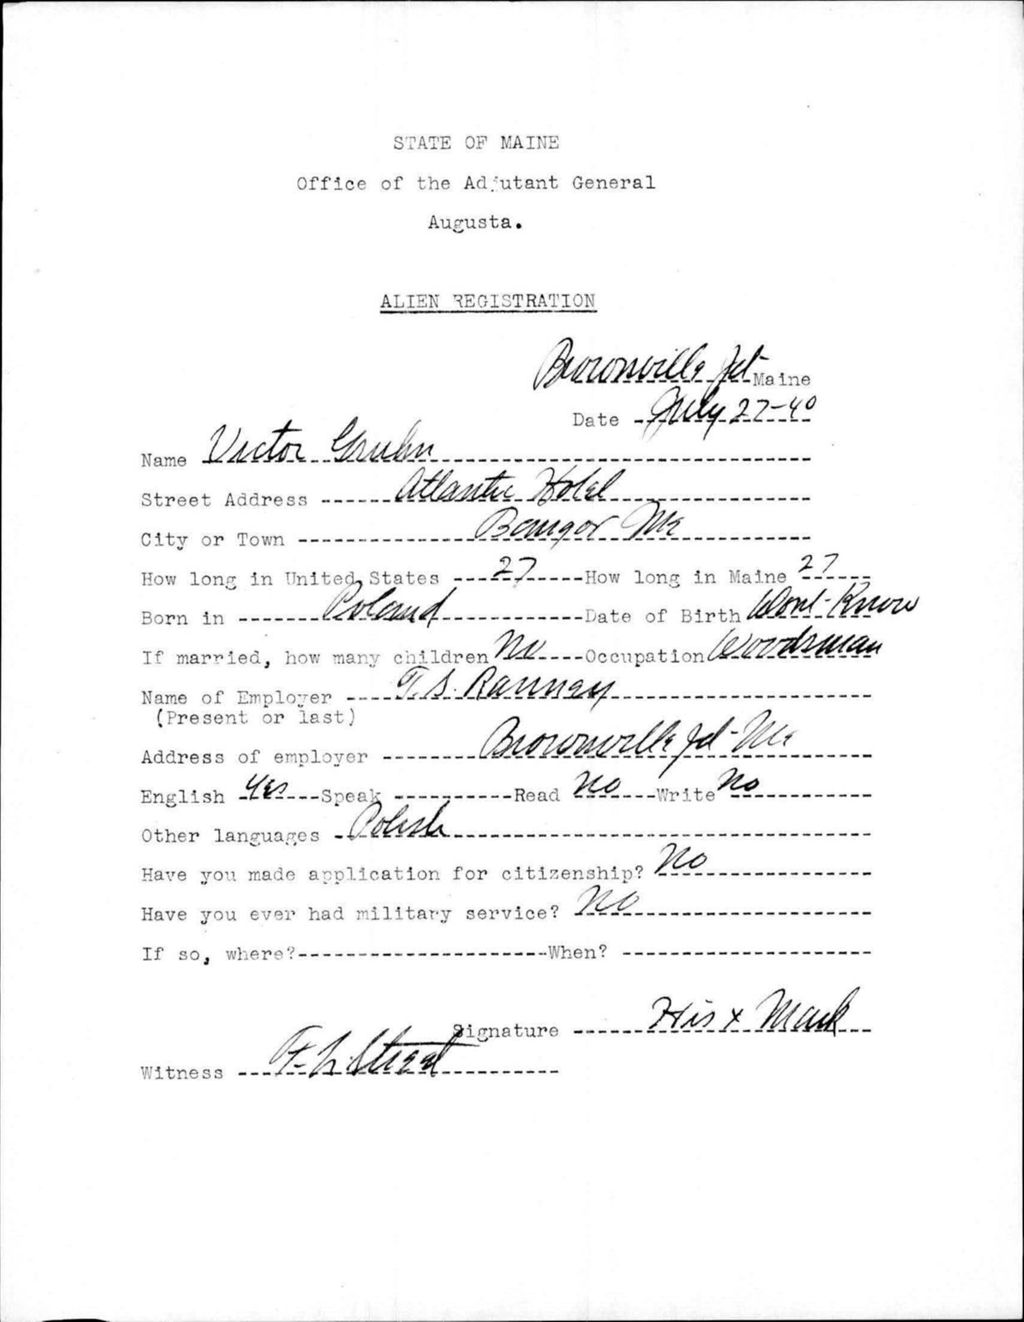 STATE OF MAINE
Office of the Adjutant General
Augusta.
ALIEN REGISTRATION
Brownville Jct Maine
Date July 27-40
Name Victor
Street Address Atlantic Hotel
City or Town Bangor Me
How long in United States 27 How long in Maine 27
Born in Poland Date of Birth Dont-Know
If married, how many children No Occupation Woodsman
Name of Employer T.S. Ranney
(Present or last)
Address of employer Brownville Jct-Me
English Yes Speak Read No Write No
Other languages Polish
Have you made application for citizenship? No
Have you ever had military service? No
If so, where? When?
Signature His x Mark
Witness F. L. Street